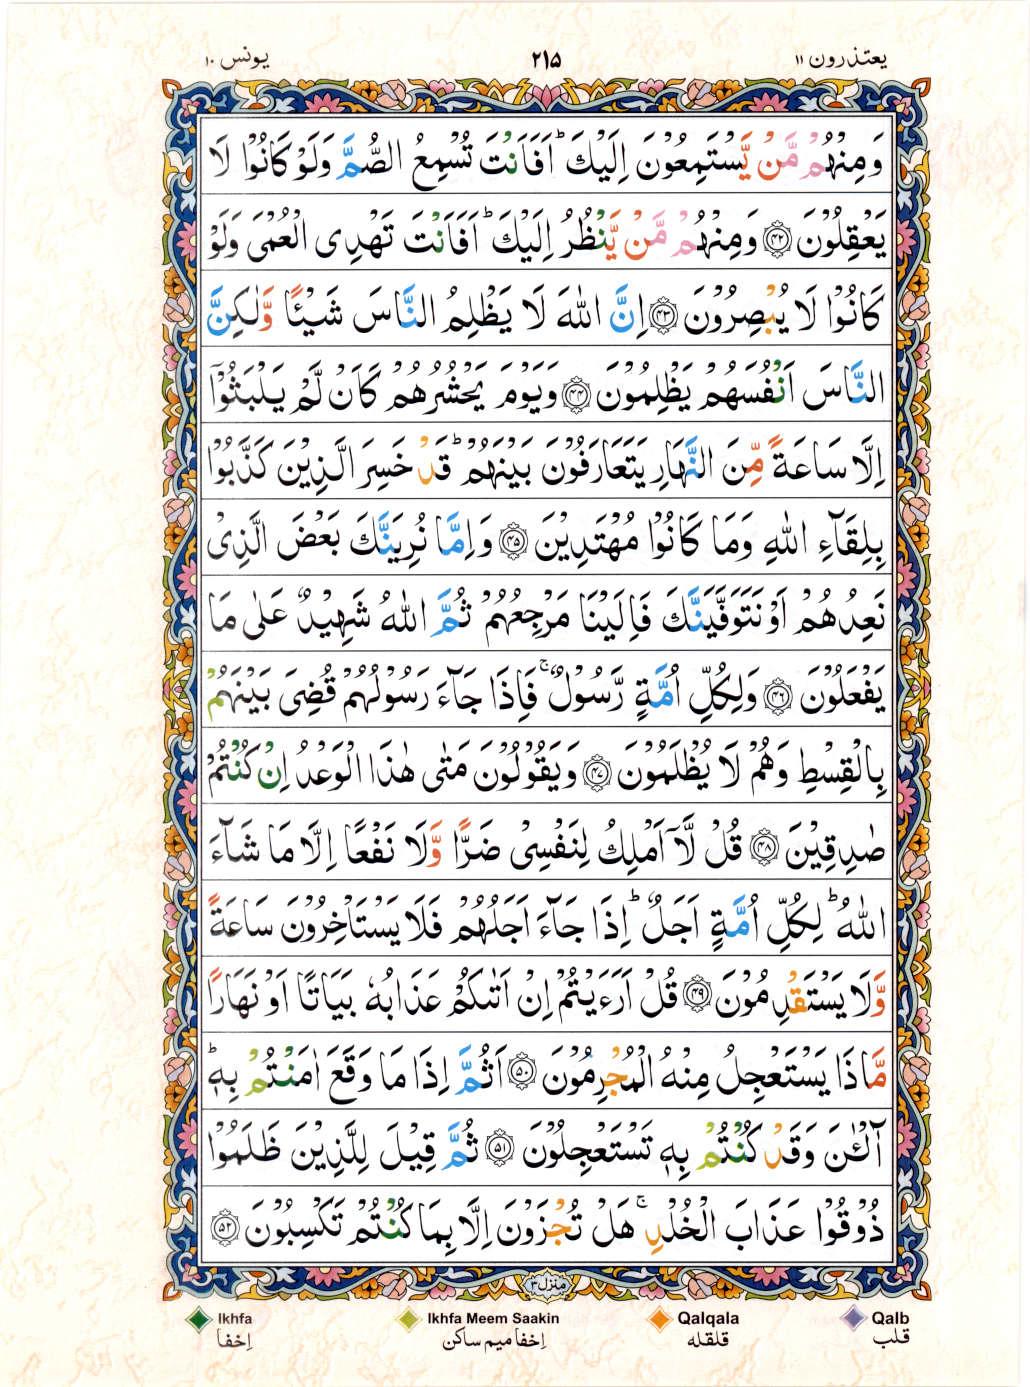 یعتذرون ۱۱
۲۱۵
یونس ۱۰
وَمِنْهُمْ مَّنْ یَّسْتَمِعُوْنَ اِلَیْكَ ؕ اَفَاَنْتَ تُسْمِعُ الصُّمَّ وَلَوْ كَانُوْا لَا
یَعْقِلُوْنَ ﴿۴۲﴾ وَمِنْهُمْ مَّنْ یَّنْظُرُ اِلَیْكَ ؕ اَفَاَنْتَ تَهْدِی الْعُمْیَ وَلَوْ
كَانُوْا لَا یُبْصِرُوْنَ ﴿۴۳﴾ اِنَّ اللّٰهَ لَا یَظْلِمُ النَّاسَ شَیْـًٔا وَّلٰكِنَّ
النَّاسَ اَنْفُسَهُمْ یَظْلِمُوْنَ ﴿۴۴﴾ وَیَوْمَ یَحْشُرُهُمْ كَاَنْ لَّمْ یَلْبَثُوْۤا
اِلَّا سَاعَةً مِّنَ النَّهَارِ یَتَعَارَفُوْنَ بَیْنَهُمْ ؕ قَدْ خَسِرَ الَّذِیْنَ كَذَّبُوْا
بِلِقَآءِ اللّٰهِ وَمَا كَانُوْا مُهْتَدِیْنَ ﴿۴۵﴾ وَاِمَّا نُرِیَنَّكَ بَعْضَ الَّذِیْ
نَعِدُهُمْ اَوْ نَتَوَفَّیَنَّكَ فَاِلَیْنَا مَرْجِعُهُمْ ثُمَّ اللّٰهُ شَهِیْدٌ عَلٰی مَا
یَفْعَلُوْنَ ﴿۴۶﴾ وَلِكُلِّ اُمَّةٍ رَّسُوْلٌ ۚ فَاِذَا جَآءَ رَسُوْلُهُمْ قُضِیَ بَیْنَهُمْ
بِالْقِسْطِ وَهُمْ لَا یُظْلَمُوْنَ ﴿۴۷﴾ وَیَقُوْلُوْنَ مَتٰی هٰذَا الْوَعْدُ اِنْ كُنْتُمْ
صٰدِقِیْنَ ﴿۴۸﴾ قُلْ لَّاۤ اَمْلِكُ لِنَفْسِیْ ضَرًّا وَّلَا نَفْعًا اِلَّا مَا شَآءَ
اللّٰهُ ؕ لِكُلِّ اُمَّةٍ اَجَلٌ ؕ اِذَا جَآءَ اَجَلُهُمْ فَلَا یَسْتَاْخِرُوْنَ سَاعَةً
وَّلَا یَسْتَقْدِمُوْنَ ﴿۴۹﴾ قُلْ اَرَءَیْتُمْ اِنْ اَتٰىكُمْ عَذَابُهٗ بَیَاتًا اَوْ نَهَارًا
مَّاذَا یَسْتَعْجِلُ مِنْهُ الْمُجْرِمُوْنَ ﴿۵۰﴾ اَثُمَّ اِذَا مَا وَقَعَ اٰمَنْتُمْ بِهٖ ؕ
آٰلْـٰٔنَ وَقَدْ كُنْتُمْ بِهٖ تَسْتَعْجِلُوْنَ ﴿۵۱﴾ ثُمَّ قِیْلَ لِلَّذِیْنَ ظَلَمُوْا
ذُوْقُوْا عَذَابَ الْخُلْدِ ۚ هَلْ تُجْزَوْنَ اِلَّا بِمَا كُنْتُمْ تَكْسِبُوْنَ ﴿۵۲﴾
منزل ۳
Ikhfa
اِخفا
Ikhfa Meem Saakin
اِخفا میم ساکن
Qalqala
قلقلہ
Qalb
قلب